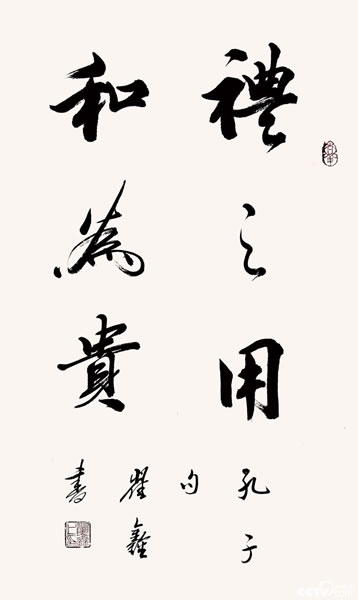 禮之用
和為貴
孔子
句
瞿鑫
書
CCTV.com